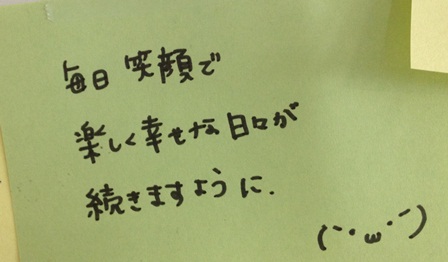 毎日 笑顔で
楽しく幸せな日々が
続きますように.
(｀･ω･´)